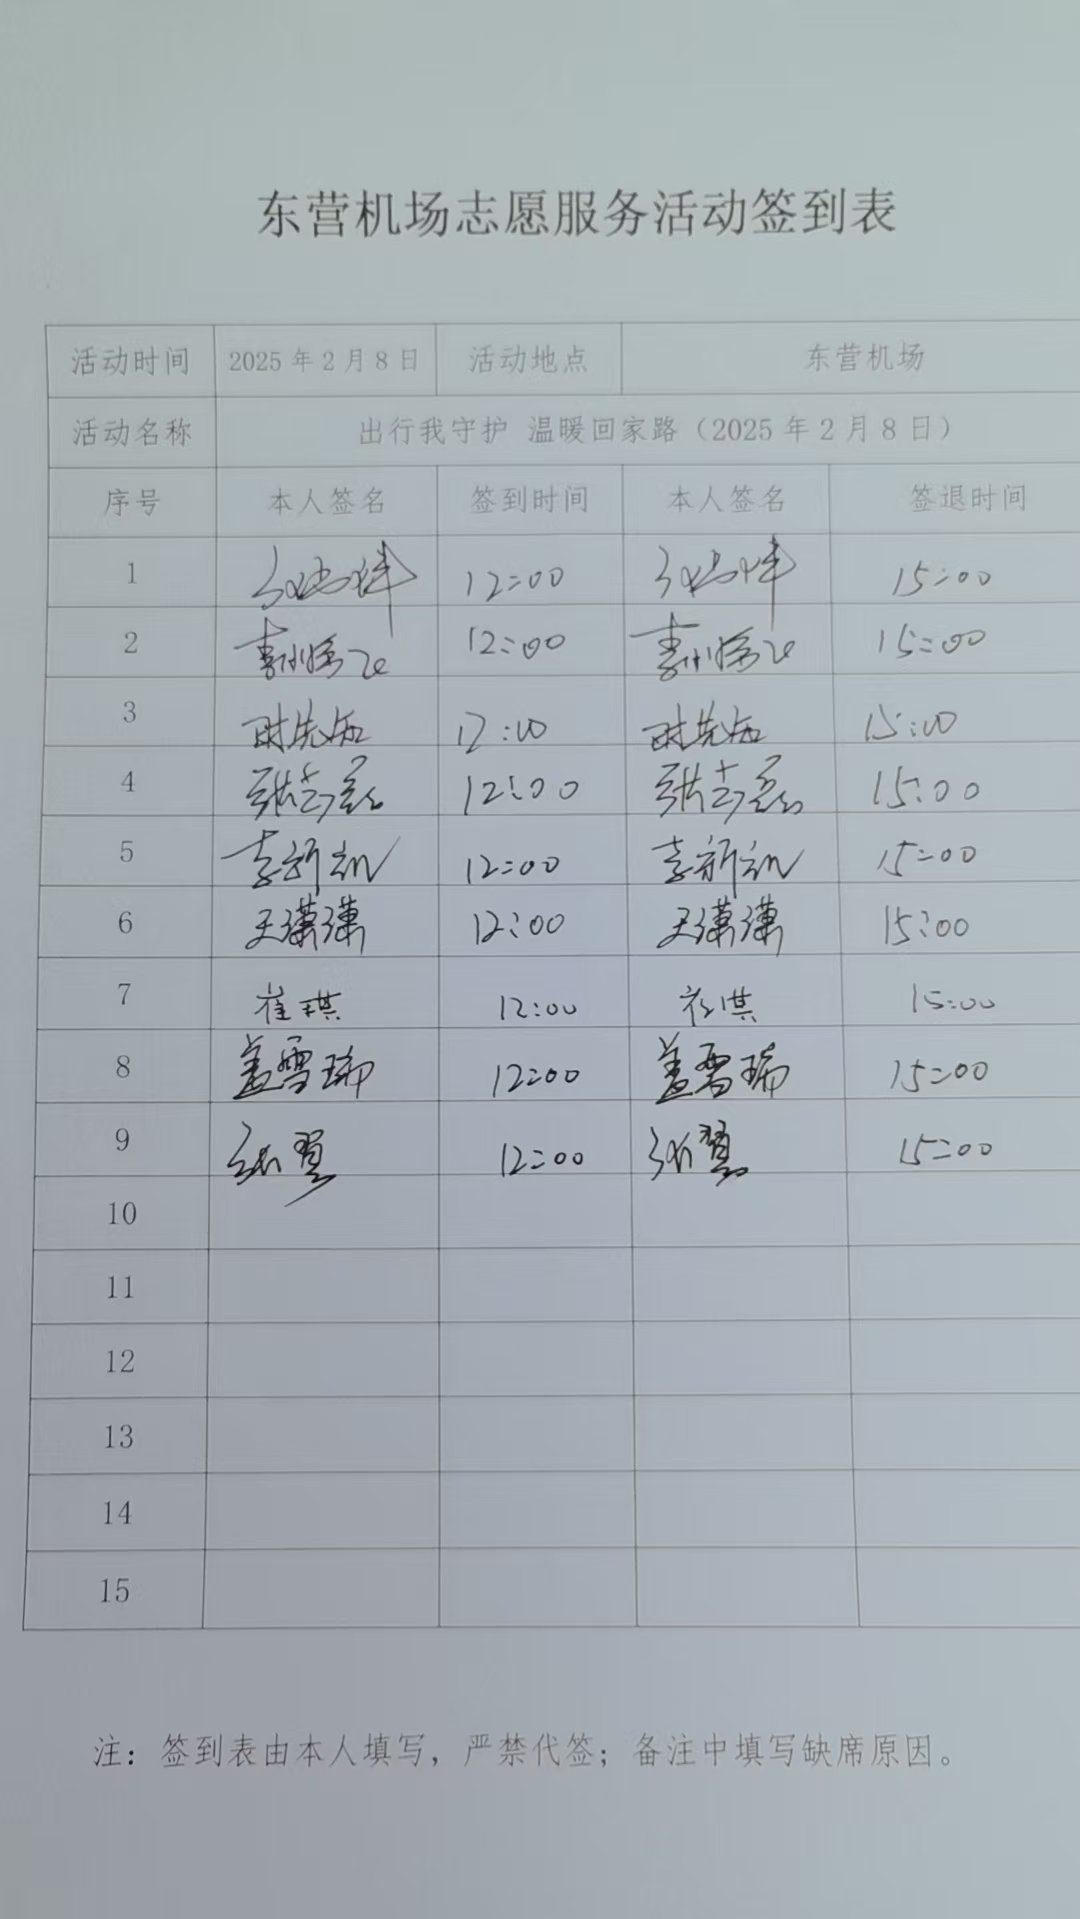 东营机场志愿服务活动签到表
活动时间 2025年2月8日 活动地点 东营机场
活动名称 出行我守护 温暖回家路（2025年2月8日）
序号 本人签名 签到时间 本人签名 签退时间
1 12:00 15:00
2 12:00 15:00
3 12:00 15:00
4 12:00 15:00
5 12:00 15:00
6 王潇潇 12:00 王潇潇 15:00
7 崔琪 12:00 崔琪 15:00
8 盖雪瑞 12:00 盖雪瑞 15:00
9 12:00 15:00
10
11
12
13
14
15
注：签到表由本人填写，严禁代签；备注中填写缺席原因。